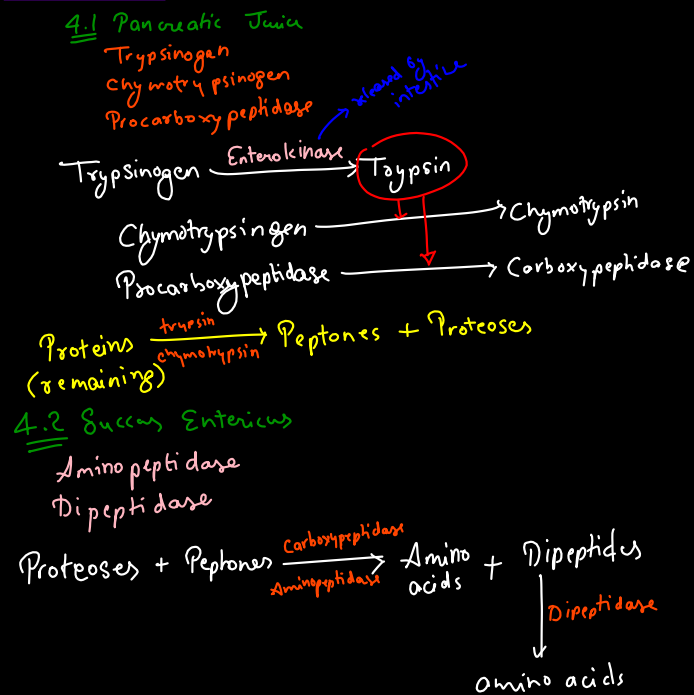 4.1 Pancreatic Juice
Trypsinogen
Chymotrypsinogen
Procarboxypeptidase
released by intestine
Trypsinogen Enterokinase Trypsin
Chymotrypsingen Chymotrypsin
Procarboxypeptidase Carboxypeptidase
Proteins trypsin Peptones + Proteoses
(remaining) chymotrypsin
4.2 Succus Entericus
Aminopeptidase
Dipeptidase
Proteoses + Peptones Carboxypeptidase Amino acids + Dipeptides
Aminopeptidase
Dipeptidase
amino acids